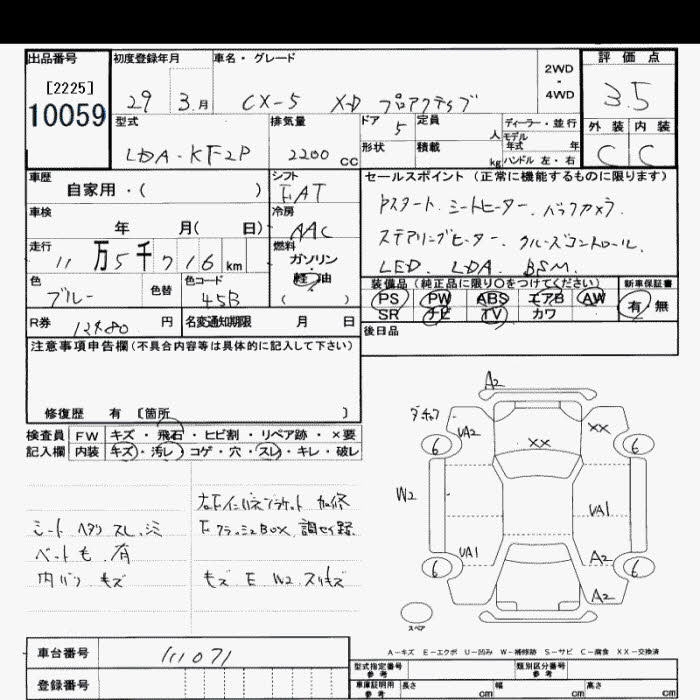 出品番号
[2225]
10059
初度登録年月
29 3.月
車名・グレード
CX-5 XD プロアクティブ
2WD
・
4WD
評価点
3.5
外装 内装
C C
型式
LDA-KF2P
排気量
2200 cc
ドア 5
形状
定員 人
積載 kg
ディーラー・並行
モデル
年式 年
ハンドル 左・右
車歴
自家用・( )
シフト
FAT
車検
年 月( 日)
冷房
AAC
走行
11万5千716km
燃料
ガソリン
・
軽油
( )
色
ブルー
色替
色コード
45B
R券 12980 円
名変通知期限 月 日
セールスポイント(正常に機能するものに限ります)
Pスタート.シートヒーター.バックカメラ.
ステアリングヒーター.クルーズコントロール.
LED. LDA. BSM.
装備品(純正品に限り○をつけてください)
PS PW ABS エアB AW
SR ナビ TV カワ
新車保証書
有 無
後日品
注意事項申告欄(不具合内容等は具体的に記入して下さい)
修復歴 有 [箇所 ]
検査員
記入欄
FW キズ・飛石・ヒビ割・リペア跡・×要
内装 キズ・汚レ・コゲ・穴・スレ・キレ・破レ
シート ヘタリ スレ.シミ
ペットも.有
内バリ キズ
F クラッシュBOX
キズ E W2 スリキズ
A2
UA2
XX
XX
6
6
W2
UA1
UA1
A2
6
6
A2
スペア
A-キズ E-エクボ U-凹み W-補修跡 S-サビ C-腐食 XX-交換済
車台番号 111071
登録番号
型式指定番号
参考
類別区分番号
参考
車庫証明用
参考
長さ cm
幅 cm
高さ cm